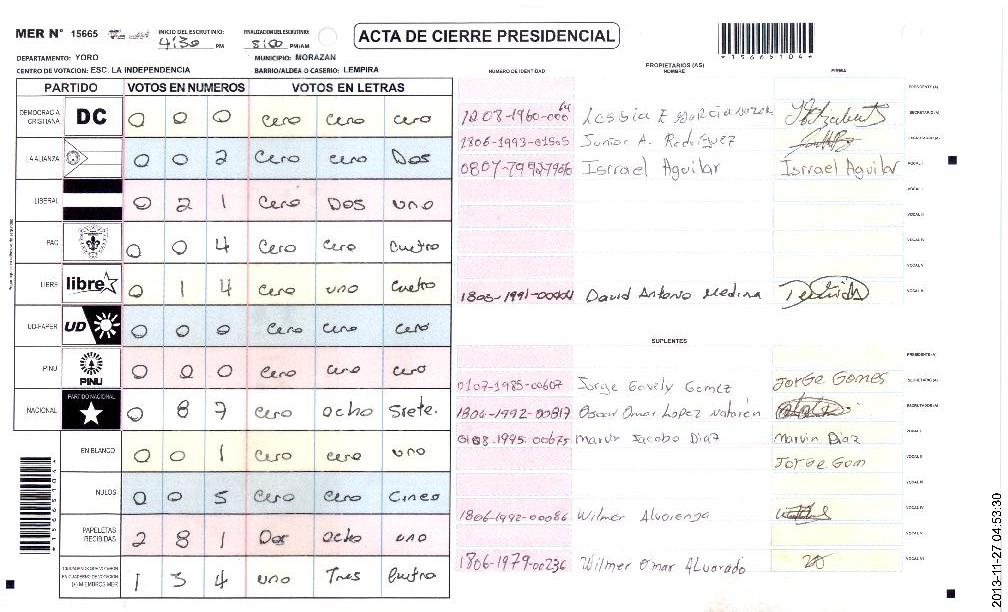 MER N° 15665 INICIO DEL ESCRUTINIO: 4:30 PM FINALIZACION DEL ESCRUTINIO: 8:00 PM/AM
ACTA DE CIERRE PRESIDENCIAL
*15665104*
DEPARTAMENTO: YORO MUNICIPIO: MORAZAN
CENTRO DE VOTACION: ESC. LA INDEPENDENCIA BARRIO/ALDEA O CASERIO: LEMPIRA
PARTIDO VOTOS EN NUMEROS VOTOS EN LETRAS
DEMOCRACIA CRISTIANA DC 0 0 0 cero cero cero
LA ALIANZA 0 0 2 cero cero Dos
LIBERAL 0 2 1 cero Dos uno
PAC 0 0 4 cero cero cuatro
LIBRE libre 0 1 4 cero uno cuatro
UD-FAPER UD 0 0 0 cero cero cero
PINU PINU 0 0 0 cero cero cero
NACIONAL PARTIDO NACIONAL 0 8 7 cero ocho siete.
EN BLANCO 0 0 1 cero cero uno
NULOS 0 0 5 cero cero cinco
PAPELETAS RECIBIDAS 2 8 1 Dos ocho uno
1 3 4 uno Tres cuatro
*15665104*
PROPIETARIOS (AS)
NUMERO DE IDENTIDAD NOMBRE FIRMA
PRESIDENTE (A)
Lessia E SECRETARIO (A)
1806-1993-01505 Junior A. Rodriguez ESCRUTADOR (A)
Isrrael Aguilar Isrrael Aguilar VOCAL I
VOCAL II
VOCAL III
VOCAL IV
VOCAL V
David Antonio Medina
SUPLENTES
PRESIDENTE (A)
0107-1985-00607 Jorge Gomez Jorge Gomes SECRETARIO (A)
1804-1992-00817 Oscar Omar Lopez Natarén ESCRUTADOR (A)
0108-1995-00675 Marvin Jacobo Diaz Marvin Diaz VOCAL I
Jorge Gom VOCAL II
VOCAL III
1806-1992-00086 Wilmer Alvarenga VOCAL IV
VOCAL V
1806-1979-00236 Wilmer Omar Alvarado VOCAL VI
2013-11-27 04:53:30